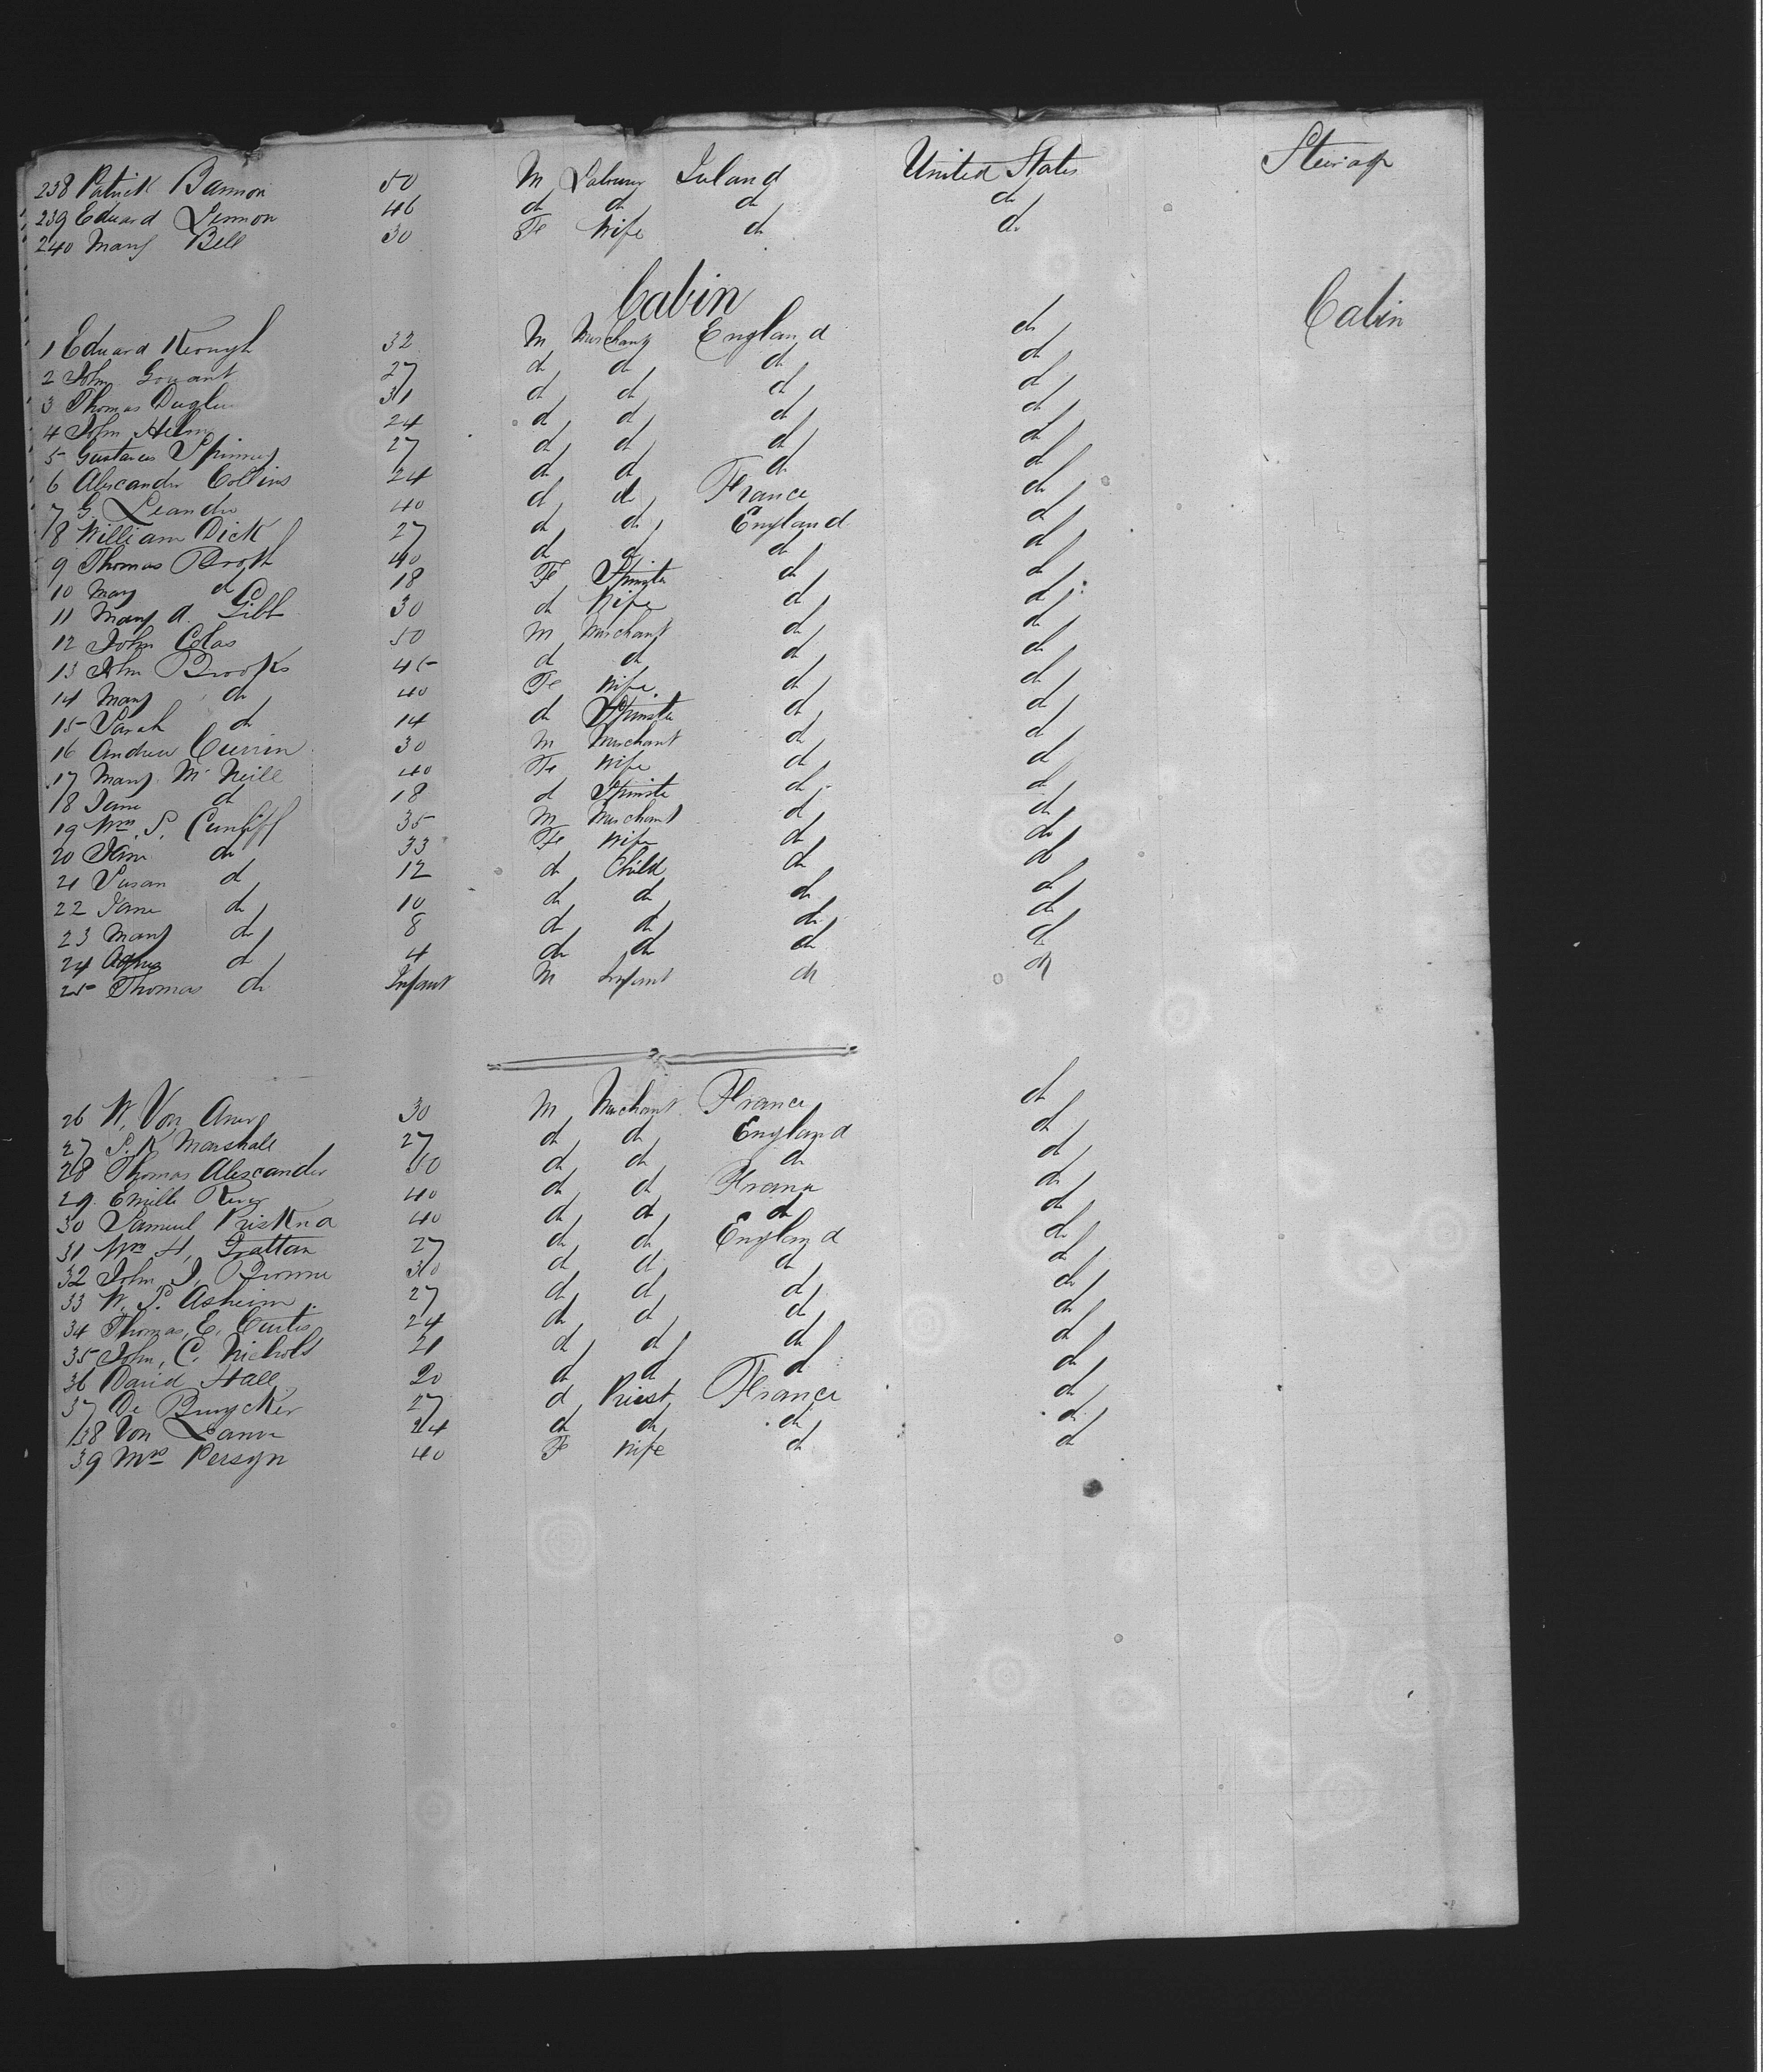 238 Patrick Bannon 50 M Labourer Ireland United States Steerage
239 Edward Lennon 46 do do do do
240 Mary Bell 30 Fe Wife do do
Cabin
Cabin
1 Edward Keough 32 M Merchant England do
2 John 27 do do do do
3 Thomas 31 do do do do
4 John 24 do do do do
5 Gustavus 27 do do do do
6 Alexander Collins 24 do do do do
7 G. Leandre 40 do do France do
8 William Dick 27 do do England do
9 Thomas 40 do do do do
10 Mary do 18 Fe Spinster do do
11 Mary A. Gibb 30 do Wife do do
12 John Colas 50 M Merchant do do
13 John Brooks 45 do do do do
14 Mary do 40 Fe Wife do do
15 Sarah do 14 do Spinster do do
16 Andrew Currin 30 M Merchant do do
17 Mary McNeill 40 Fe Wife do do
18 Jane do 18 do Spinster do do
19 Wm. S. Cunliff 35 M Merchant do do
20 Jane do 33 Fe Wife do do
21 Susan do 12 do Child do do
22 Jane do 10 do do do do
23 Mary do 8 do do do do
24 Agnes do 4 do do do do
25 Thomas do Infant M Infant do do
26 W. Von 30 M Merchant France do
27 S. K. Marshall 27 do do England do
28 Thomas Alexander 50 do do do do
29 Emille 40 do do France do
30 Samuel 40 do do do do
31 Wm H. Grattan 27 do do England do
32 John J. 30 do do do do
33 W. S. Asheim 27 do do do do
34 Thomas, E. Curtis 24 do do do do
35 John, C. Nichols 21 do do do do
36 David Hall 20 do do do do
37 De Bruycker 27 do Priest France do
38 Von 24 do do do do
39 Mrs Persyn 40 Fe Wife do do